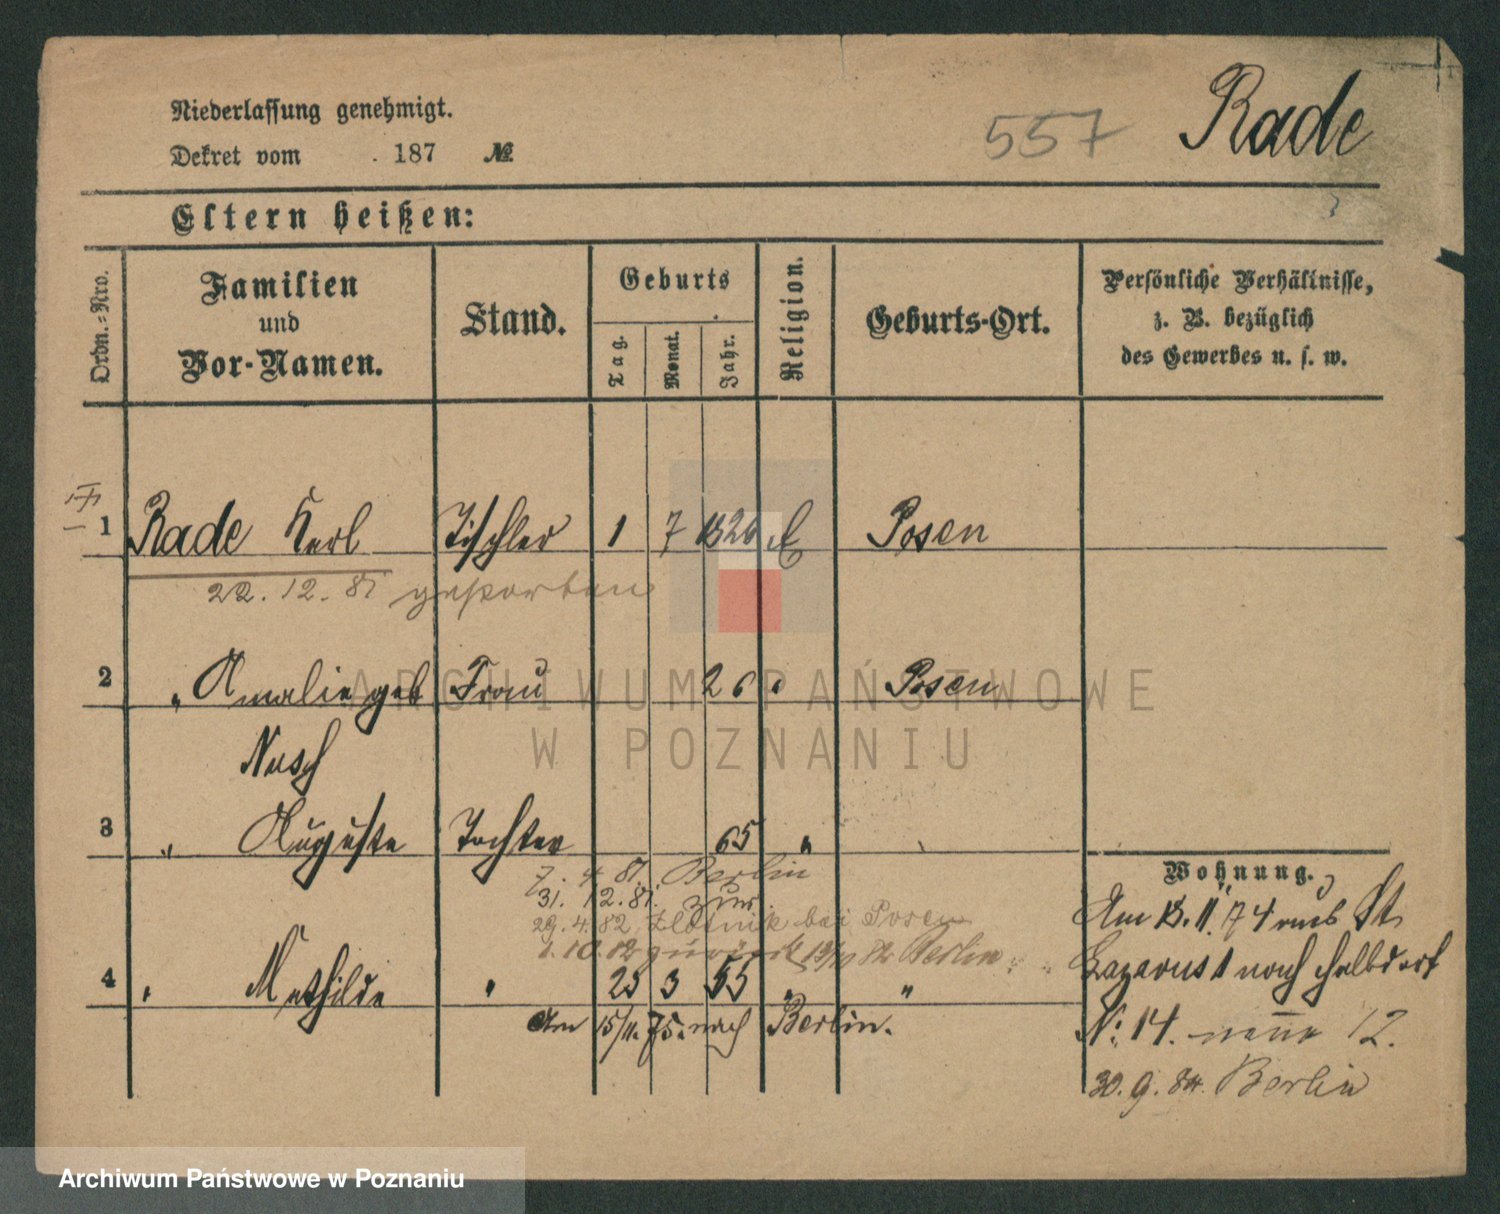 Niederlassung genehmigt.
Dekret vom . 187 №
557
Rade
Eltern heißen:
Ordn.-Nro.
Familien
und
Vor-Namen.
Stand.
Geburts
Tag.
Monat.
Jahr.
Religion.
Geburts-Ort.
Persönliche Verhältnisse,
z. B. bezüglich
des Gewerbes u. s. w.
1 Rade Karl Tischler 1 7 1826 E Posen
22. 12. 81 gestorben
2 " Amalie geb Frau 26 " Posen
Nusch
3 " Auguste Tochter 65 "
7. 4 81. Berlin
31. 12. 81. zur.
29. 4. 82 Zlotnik bei Posen
1. 10. 82 zurück Berlin
4 " Mathilde " 23 3 55 " "
Am 15/11. 75. nach Berlin.
Wohnung.
Am 13. 11. 74 aus St
Lazarus 1 nach Halbdorf
No: 14. neue 12.
30. 9. 84. Berlin
ARCHIWUM PAŃSTWOWE
W POZNANIU
Archiwum Państwowe w Poznaniu